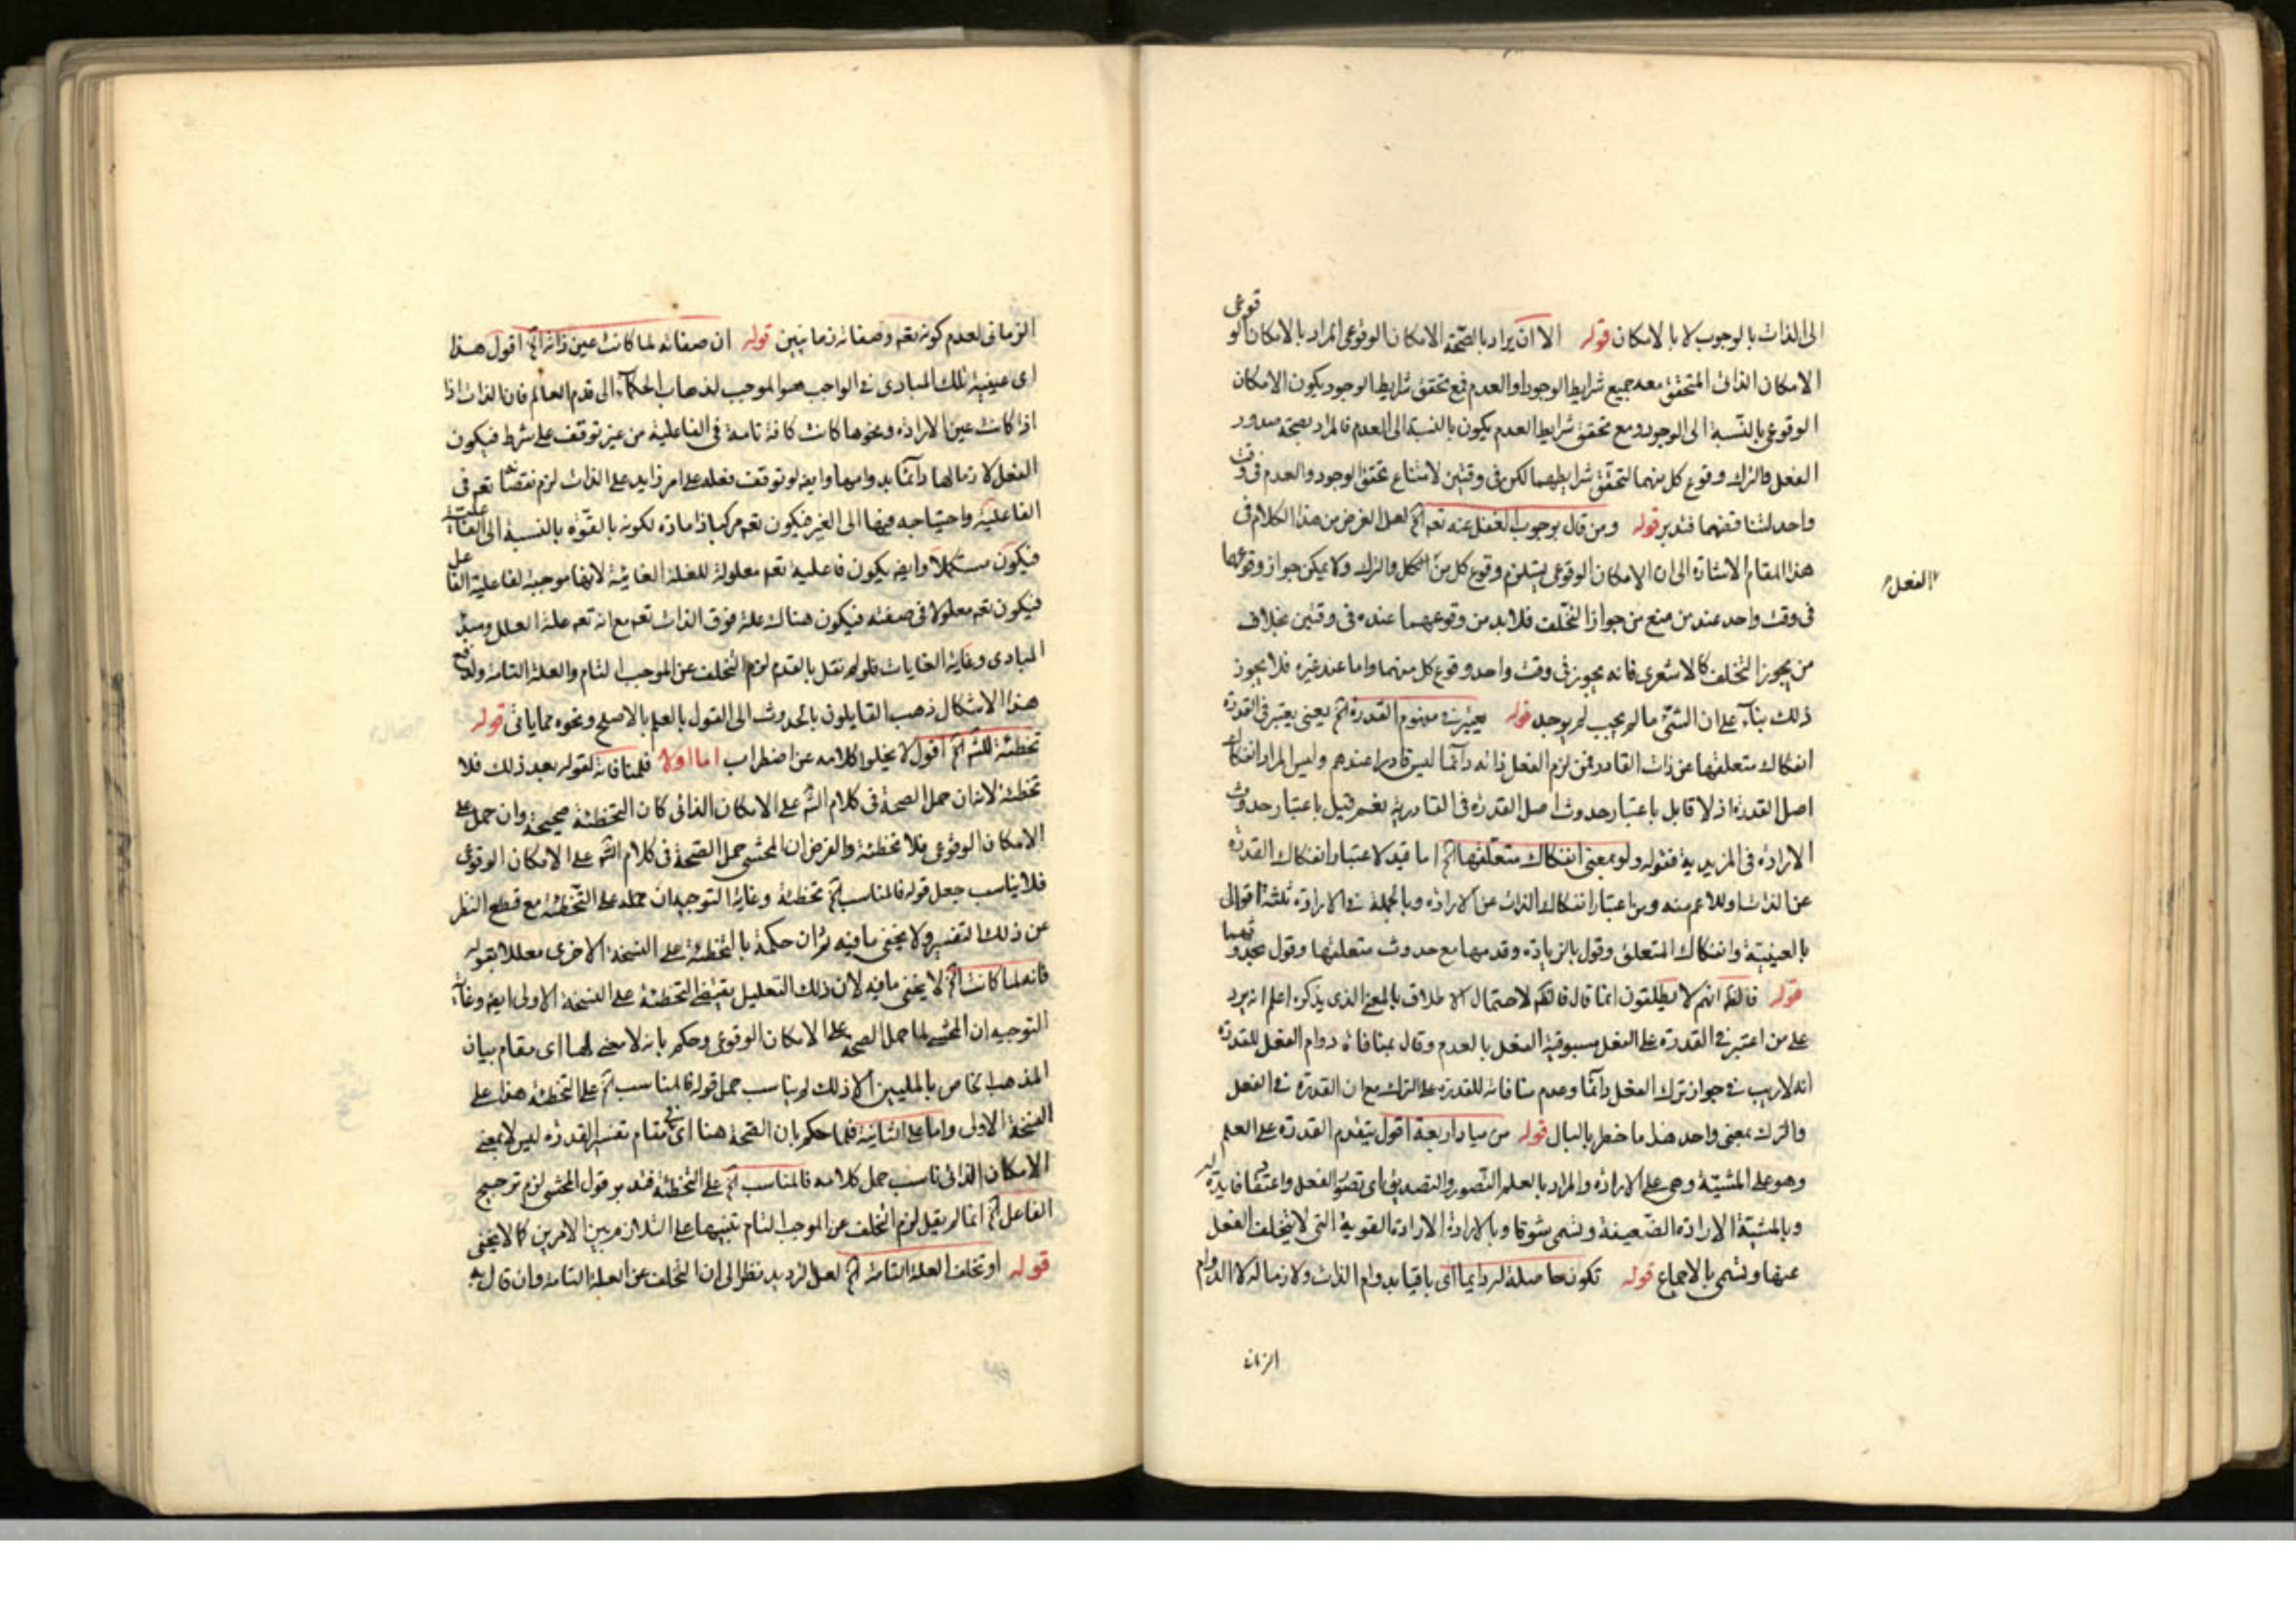 الى الذات بالوجوب لا بالامكان قوله الا ان يراد بالصحة الامكان الوقوعى المراد بالامكان الوقوعى
الامكان الذاتى المتحقق معه جميع شرايط الوجود او العدم فمع تحقق شرايط الوجود يكون الامكان
الوقوعى بالنسبة الى الوجود ومع تحقق شرايط العدم يكون بالنسبة الى العدم فالمراد بصحة صدور
الفعل والترك وقوع كل منهما لتحقق شرايطهما لكن فى وقتين لامتناع تحقق الوجود والعدم فى وقت
واحد لتناقضهما فتدبر قوله ومن قال بوجوب الفعل عنه تعه اﻟﺦ لعل الغرض من هذا الكلام فى
هذا المقام الاشارة الى ان الامكان الوقوعى يستلزم وقوع كل من الفعل والترك ولا يمكن جواز وقوعهما
الفعل
فى وقت واحد عند من منع من جواز التخلف فلا بد من وقوعهما عنده فى وقتين بخلاف
من يجوز التخلف كالاشعرى فانه يجوز فى وقت واحد وقوع كل منهما واما عند غيره فلا يجوز
ذلك بناء على ان الشئ ما لم يجب لم يوجد قوله يعتبر فى مفهوم القدرة اﻟﺦ يعنى يعتبر فى القدرة
انفكاك متعلقها عن ذات القادر فمن لزم الفعل ذاته دائما ليس قادرا عندهم وليس المراد انفكاك
اصل القدرة اذ لا قايل باعتبار حدوث اصل القدرة فى القادرية نعم قيل باعتبار حدوث
الارادة فى المريدية فقوله ولو بمعنى انفكاك متعلقها اﻟﺦ اما قيد لاعتبار انفكاك القدرة
عن الذات او للاعم منه ومن اعتبار انفكاك الذات عن الارادة وبالجملة فى الارادة ثلثة اقوال
بالعينية وانفكاك المتعلق وقول بالزيادة وقدمها مع حدوث متعلقها وقول بحدوثهما
قوله فالفهم انهم لا يطلقون انما قال فالفهم لاحتمال الاطلاق بالمعنى الذى يذكره اعلم انه يرد
على من اعتبر فى القدرة على الفعل مسبوقية الفعل بالعدم وقال بمنافاة دوام الفعل للقدرة
انه لا ريب فى جواز ترك الفعل دائما وعدم منافاته للقدرة على الترك مع ان القدرة فى الفعل
والترك بمعنى واحد هذا ما خطر بالبال قوله من مباد اربعة اقول يتقدم القدرة على العلم
وهو على المشيّة وهى على الارادة والمراد بالعلم التصور والتصديق اى تصوّر الفعل واعتقاد فايدته
وبالمشيّة الارادة الضعيفة وتسمى شوقا وبالارادة الارادة القوية التى لا يتخلف الفعل
عنها وتسمى بالاجماع قوله تكون حاصلة له دايما اى باقيا بدوام الذات ولازما له لا الدوام
الزمانى
الزمانى لعدم كونه تعه وصفاته زمانيين قوله ان صفاته لما كانت عين ذاته اﻟﺦ اقول هذا
اى عينية تلك المبادى فى الواجب هو الموجب لذهاب الحكماء الى قدم العالم فان الذات اذا
اذا كانت عين الارادة ونحوها كانت كافة تامة فى الفاعلية من غير توقف على شرط فيكون
الفعل لازما لها دائما بدوامها وايضه لو توقف فعله على امر زايد على الذات لزم نقصانه تعه فى
الفاعلية واحتياجه فيها الى الغير فيكون تعه مركبا ذا مادة لكونه بالقوة بالنسبة الى الفاعلية
فيكون مستكملا وايضه يكون فاعلية تعه معلولة للعلة الغائية لانها موجبة لفاعلية الفاعل
فيكون تعه معلولا فى صفته فيكون هناك علة فوق الذات تعه مع انه تعه علة العلل ومبدء
المبادى وغاية الغايات فلو لم نقل بالقدم لزم التخلف عن الموجب التام والعلة التامة ولدفع
هذا الاشكال ذهب القايلون بالحدوث الى القول بالعلم بالاصلح ونحوه مما ياتى قوله
تخطئة للشه اﻟﺦ اقول لا يخلو كلامه عن اضطراب اما اولا فلمنافاته لقوله بعد ذلك فلا
تخطئة لانه ان حمل الصحة فى كلام الشه على الامكان الذاتى كان التخطئة صحيحة وان حمل على
الامكان الوقوعى فلا تخطئة والفرض ان المحشى حمل الصحة فى كلام الشه على الامكان الوقوعى
فلا يناسب جعل قوله فالمناسب اﻟﺦ تخطئة وغاية التوجيه ان حمله على التخطئة مع قطع النظر
عن ذلك التفسير ولا يخفى ما فيه ثم ان حكمه بالتخطئة على النسخة الاخرى معللا بقوله
فانه لما كانت اﻟﺦ لا يخفى ما فيه لان ذلك التعليل يقتضى التخطئة على النسخة الاولى ايضه وغاية
التوجيه ان المحشى لما حمل الصحة على الامكان الوقوعى وحكم بانه لا معنى لها اى مقام بيان
المذهب الخاص بالمليين الا ذلك لم يناسب حمل قوله فالمناسب اﻟﺦ على التخطئة هذا على
النسخة الاولى واما على الثانية فلما حكم بان الصحة هنا اى فى مقام تفسير القدرة ليس لا بمعنى
الامكان الذاتى ناسب حمل كلامه فالمناسب اﻟﺦ على التخطئة فتدبر قول المحشى لزم ترجيح
الفاعل اﻟﺦ انما لم يقل لزم التخلف عن الموجب التام تنبيها على التلازم بين الامرين كما لا يخفى
قوله او تخلف العلة التامة اﻟﺦ لعل الترديد نظرا الى ان التخلف عن العلة التامة وان قال به